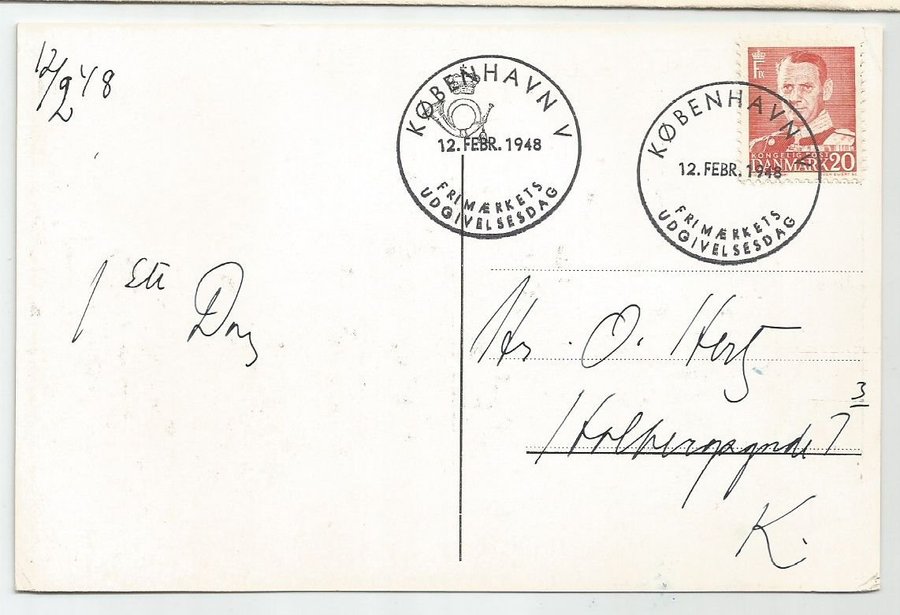 12/2 48
KØBENHAVN V
12. FEBR. 1948
FRIMÆRKETS
UDGIVELSESDAG
KØBENHAVN V
12. FEBR. 1948
FRIMÆRKETS
UDGIVELSESDAG
KONGELIG POST
DANMARK 20
Dag
Hr. O. Hertz
Holbergsgade 7 3
K.